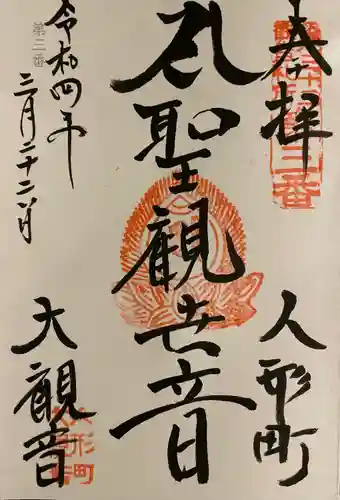 奉拝
人形町
聖観世音
大観音
令和四年
三月二十二日
第三番
三番
人形町